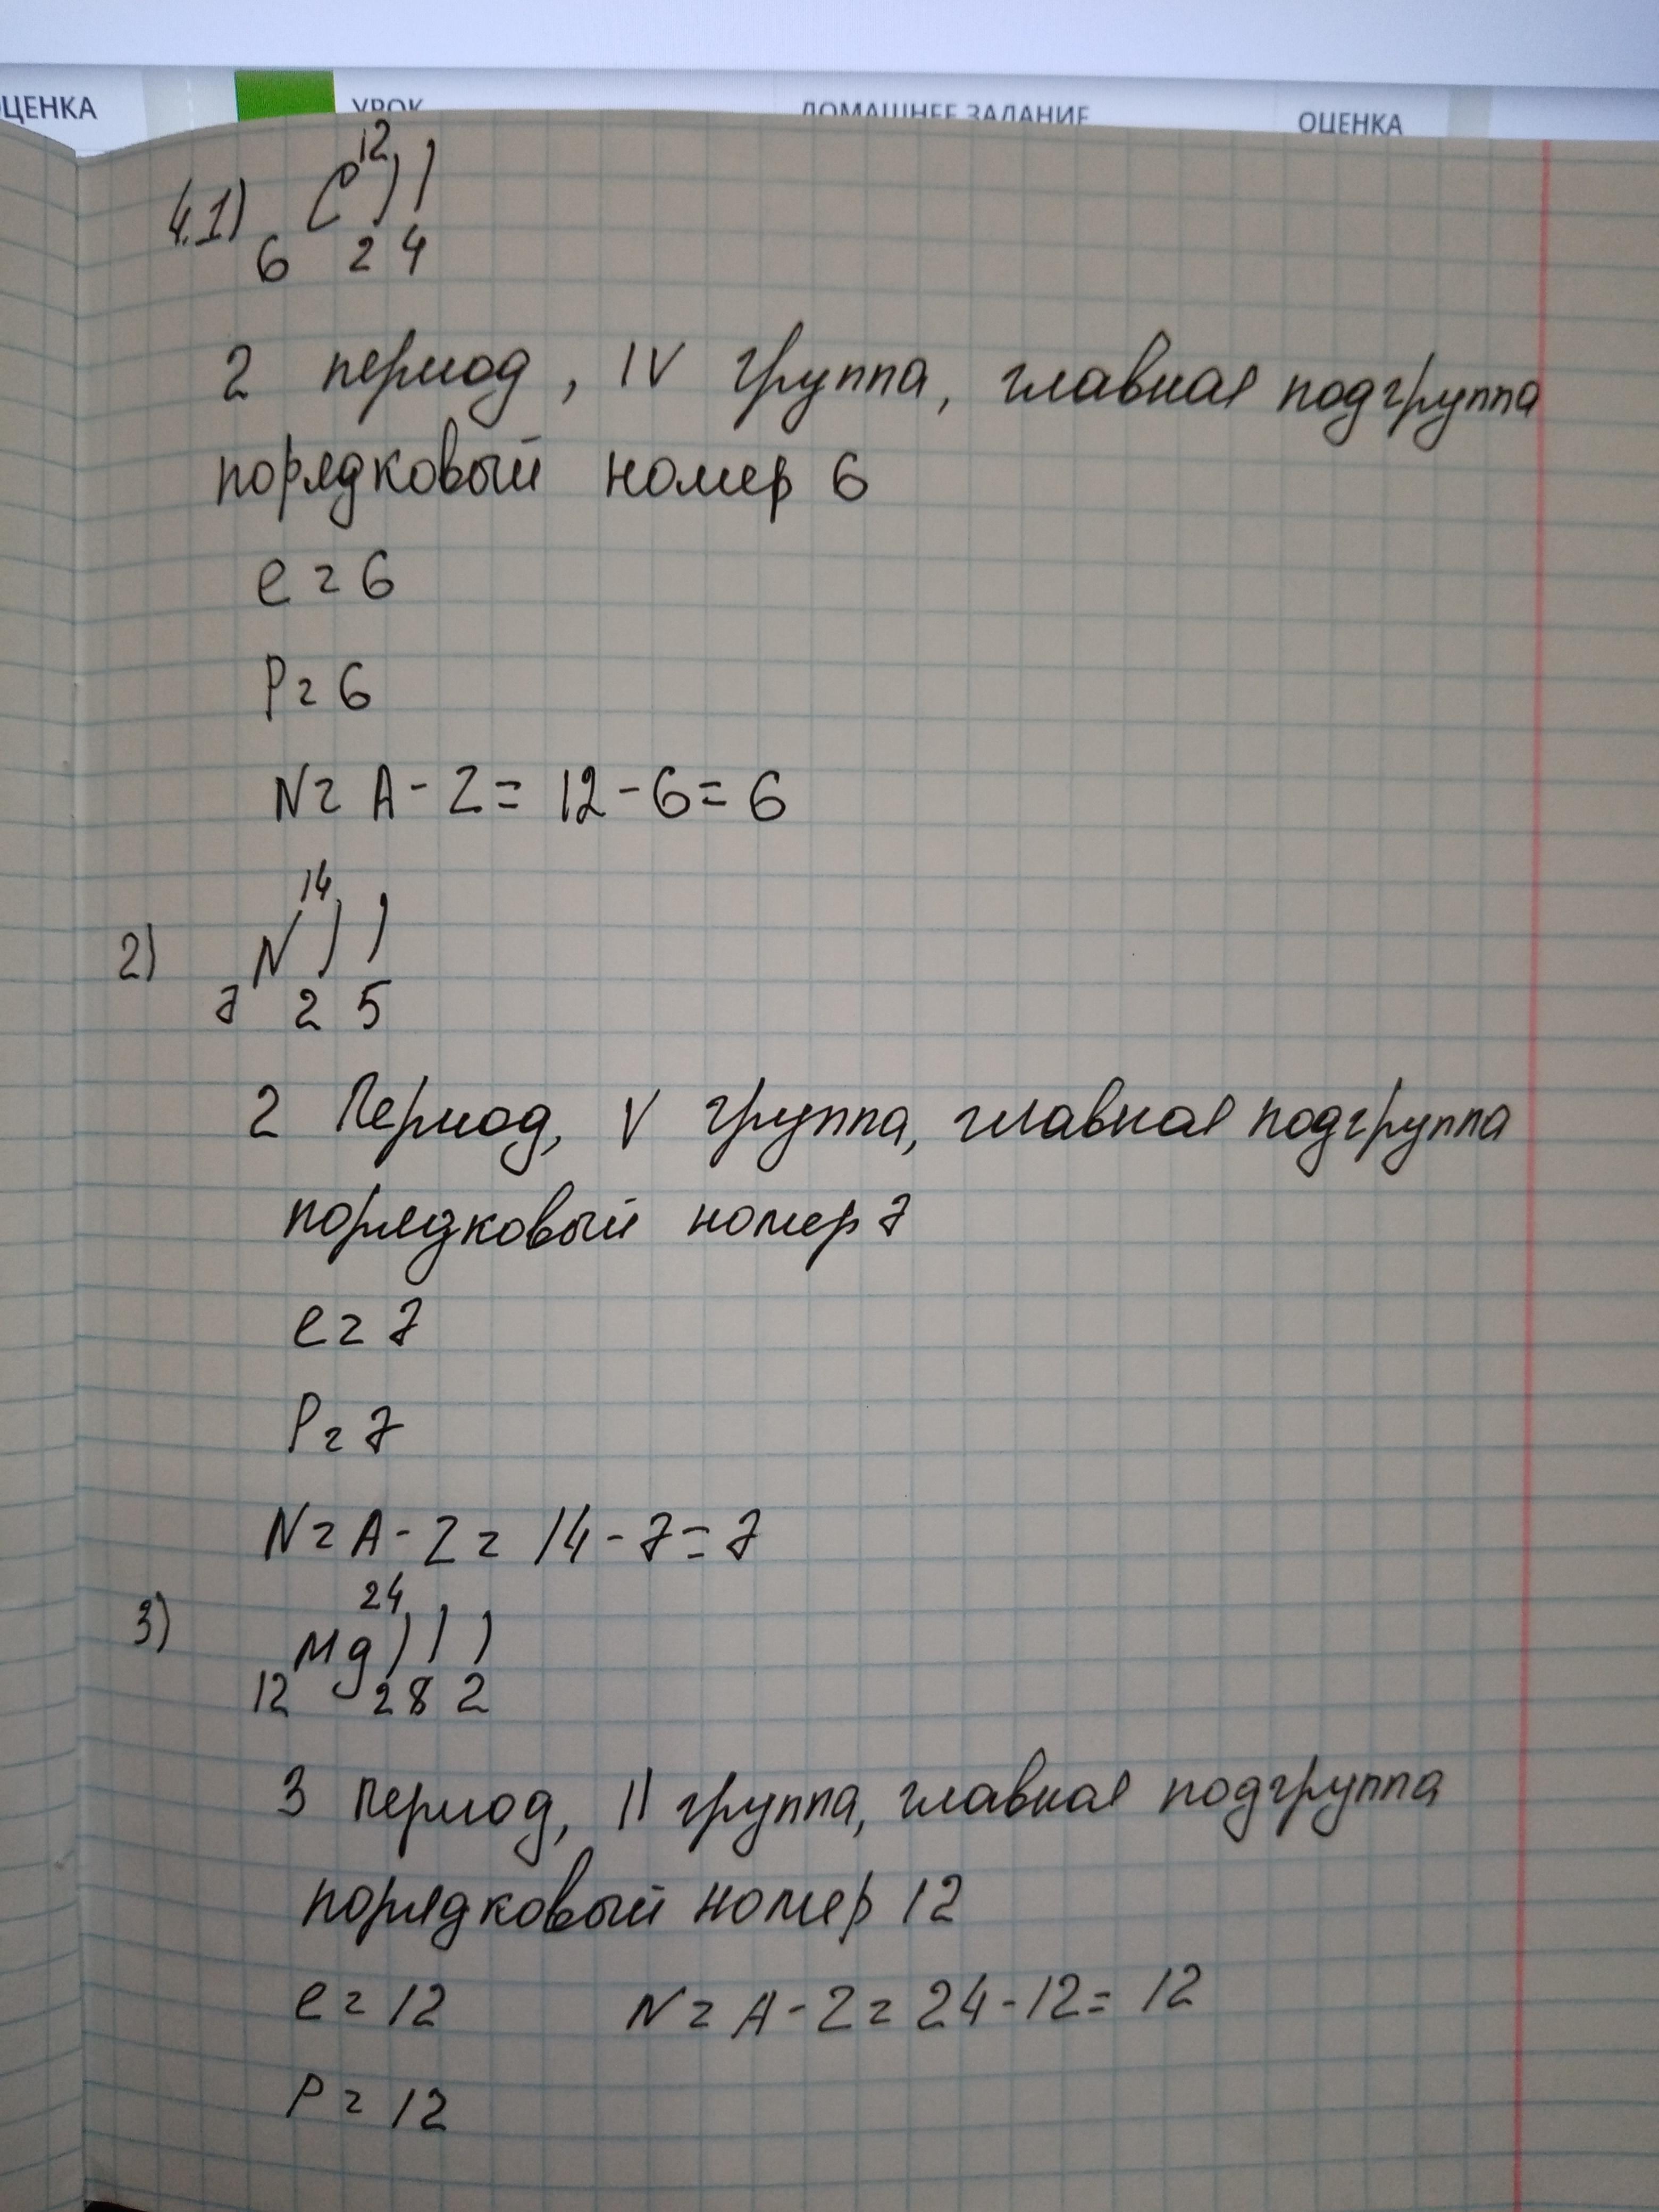 ОЦЕНКА УРОК ДОМАШНЕЕ ЗАДАНИЕ ОЦЕНКА
12
4.1) C ) )
6 2 4
2 период, IV группа, главная подгруппа
порядковый номер 6
e = 6
P = 6
N = A - Z = 12 - 6 = 6
14
2) N ) )
7 2 5
2 Период, V группа, главная подгруппа
порядковый номер 7
e = 7
P = 7
N = A - Z = 14 - 7 = 7
24
3) Mg ) ) )
12 2 8 2
3 период, II группа, главная подгруппа
порядковый номер 12
e = 12 N = A - Z = 24 - 12 = 12
P = 12